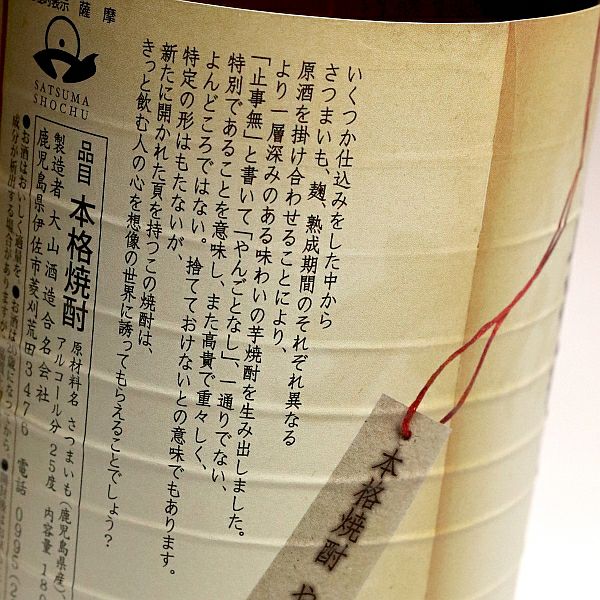 いくつか仕込みをした中から
さつまいも、麹、熟成期間のそれぞれ異なる
原酒を掛け合わせることにより、
より一層深みのある味わいの芋焼酎を生み出しました。
「止事無」と書いて「やんごとなし」、一通りでない、
特別であることを意味し、また高貴で重々しく、
よんどころではない。捨てておけないとの意味でもあります。
特定の形はもたないが、
新たに開かれた頁を持つこの焼酎は、
きっと飲む人の心を想像の世界に誘ってもらえることでしょう?
薩摩
SATSUMA
SHOCHU
品目 本格焼酎
原材料名 さつまいも(鹿児島県産)、
アルコール分 25度 内容量 180
製造者 大山酒造合名会社
鹿児島県伊佐市菱刈荒田3476 電話 0995(2
●お酒はおいしく適量を
成分が析出する場合がありますが、
本格焼酎 や